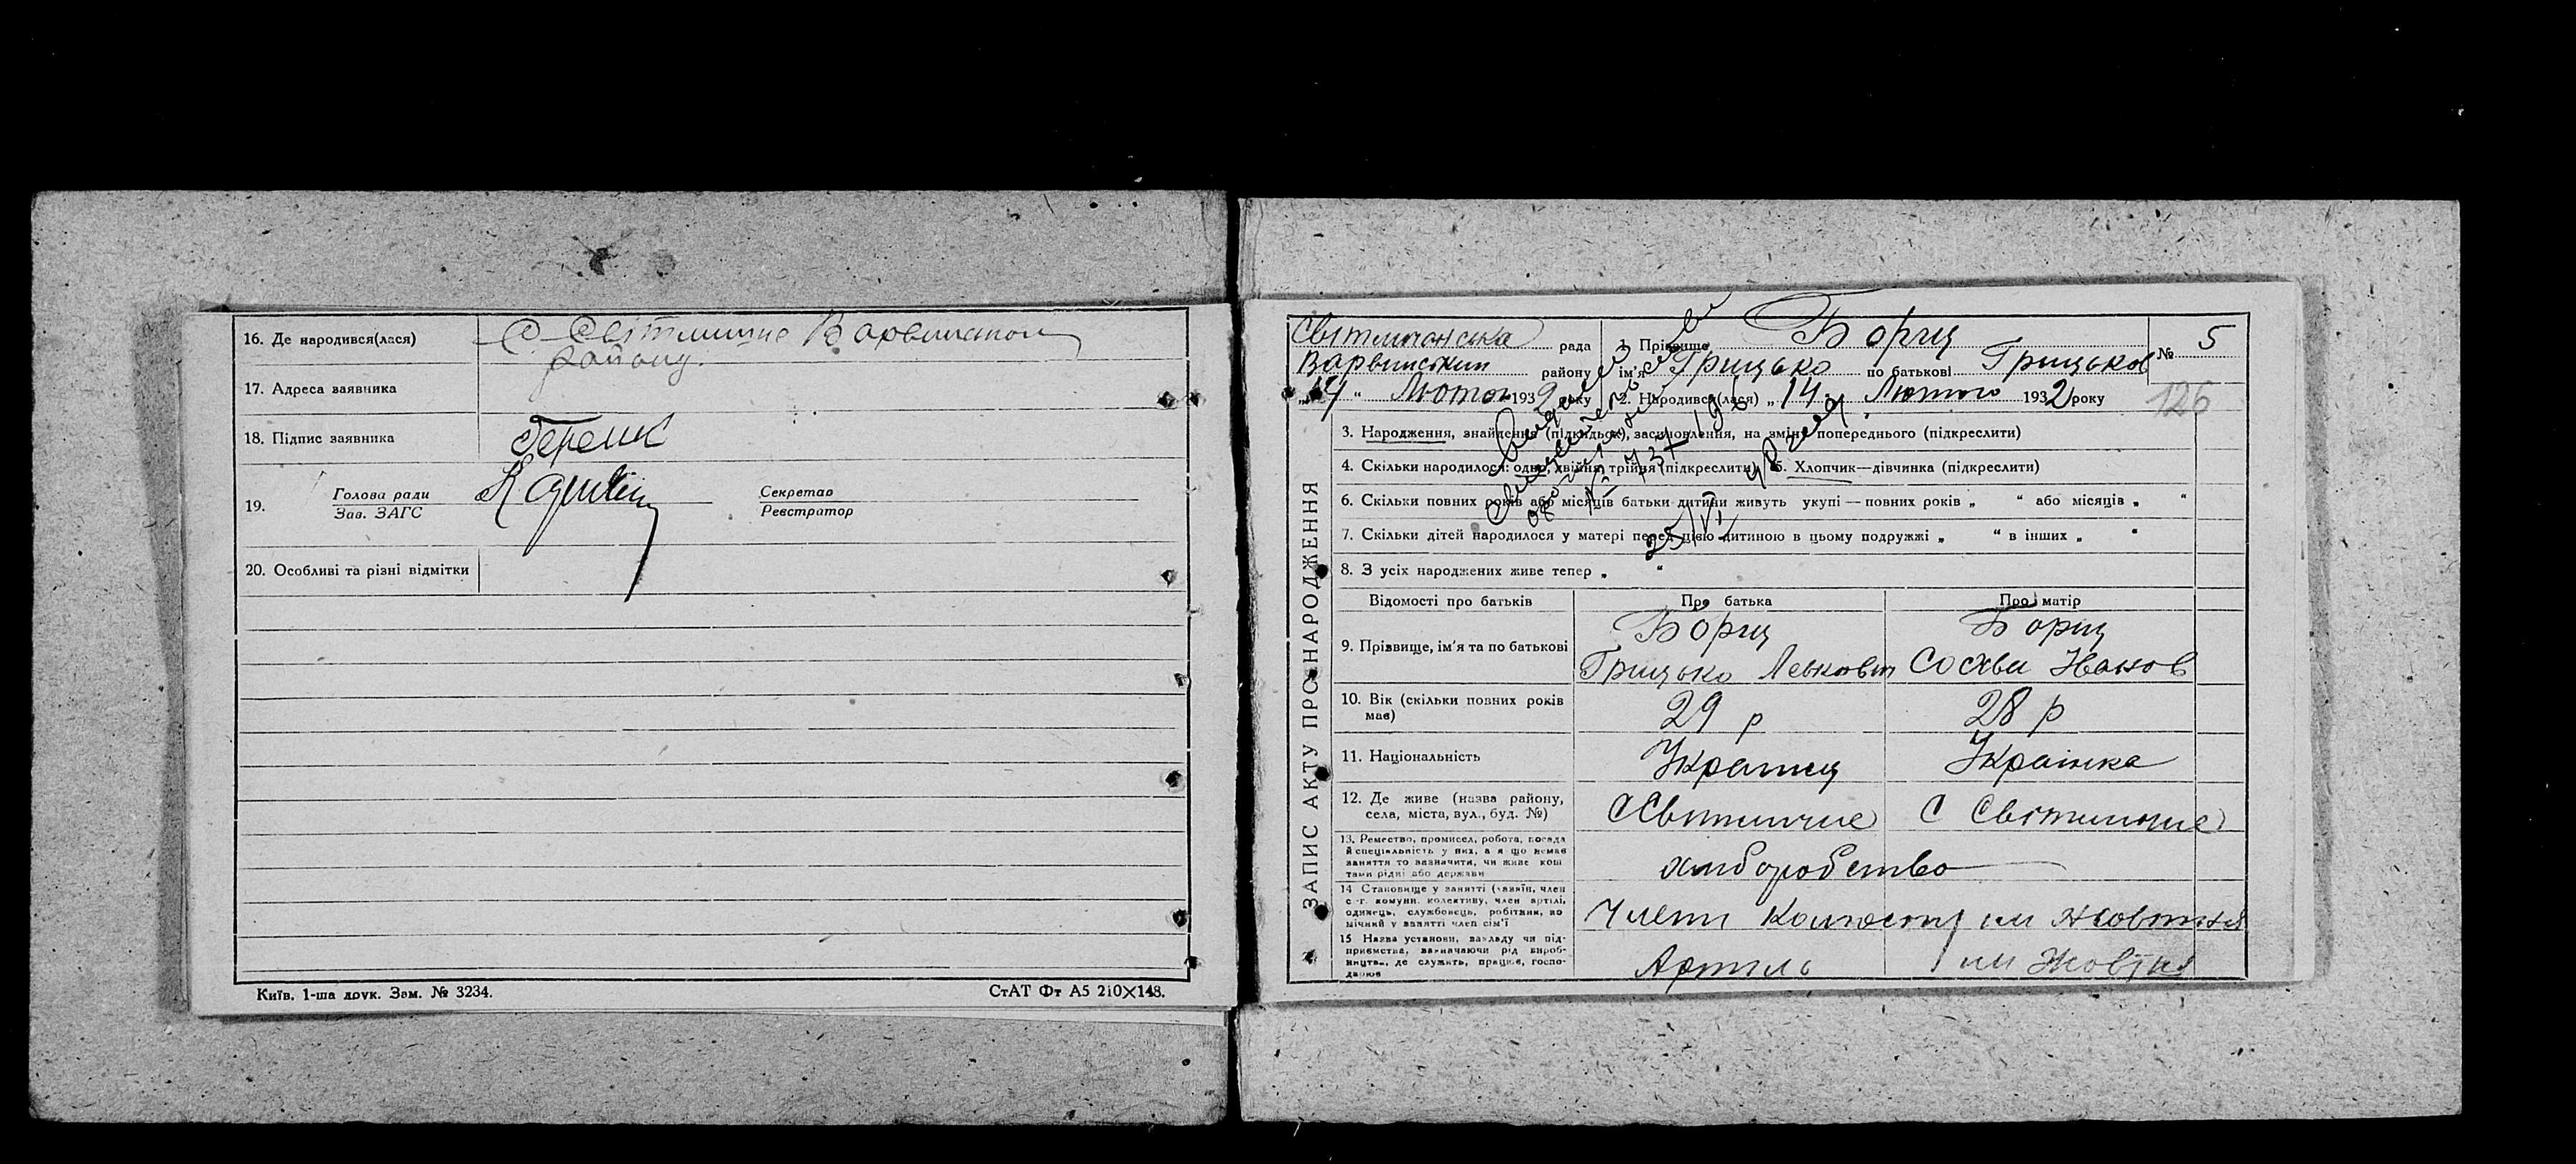 16. Де народився(лася)
с Світличне Варвинського
району.
17. Адреса заявника
18. Підпис заявника
19. Голова ради
Зав. ЗАГС
Секретар
Реєстратор
20. Особливі та різні відмітки
Київ. 1-ша друк. Зам. № 3234.
СтАТ Фт А5 210×148.
ЗАПИС АКТУ ПРО НАРОДЖЕННЯ
рада 1. Прізвище Борщ № 5
Варвинський району ім'я Грицько по батькові Грицьков
„14“ Лютого 1932 року 2. Народився(лася) „14“ Лютого 1932 року 126
3. Народження, знайдення (підкидьок), засиновлення, на зміну попереднього (підкреслити)
4. Скільки народилося: одно, двійня, трійня (підкреслити) 5. Хлопчик—дівчинка (підкреслити)
6. Скільки повних років або місяців батьки дитини живуть укупі — повних років „ “ або місяців „ “
7. Скільки дітей народилося у матері перед цією дитиною в цьому подружжі „ “ в інших „ “
8. З усіх народжених живе тепер „ “
Відомості про батьків Про батька Про матір
9. Прізвище, ім'я та по батькові
Борщ Борщ
Грицько Иванов
10. Вік (скільки повних років
має)
29 р 28 р
11. Національність
Украінка
12. Де живе (назва району,
села, міста, вул., буд. №)
с Світличне С Світличне
13. Ремество, промисел, робота, посада
й спеціяльність у них, а що немає
заняття то зазначити, чи живе кош
тами рідні або держави
хліборобство
14 Становище у занятті (хазяїн, член
с.-г. комуни, колективу, член артілі,
одинець, службовець, робітник, по
мічний у занятті член сім'ї
Члени Колгоспу им Жовтня
15 Назва установи, закладу чи під-
приємства, зазначаючи рід вироб-
ництва, де служить, працює, госпо-
дарює
Артиль им Жовтня